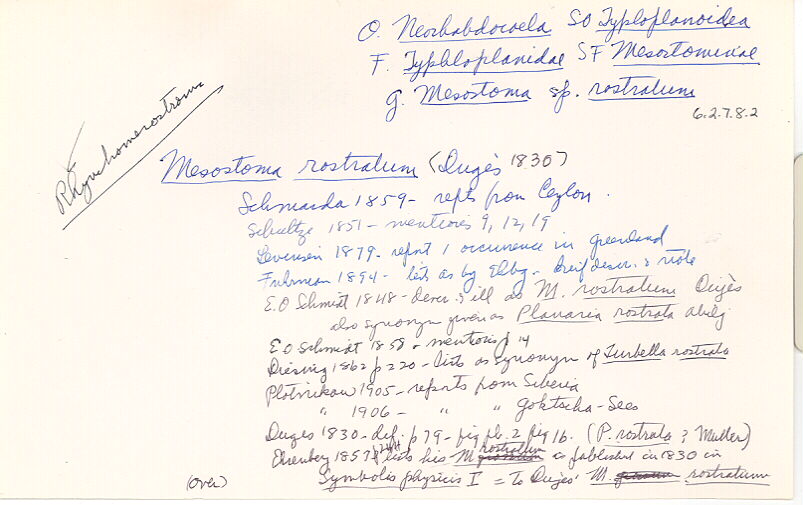 O. Neorhabdocoela SO Typloplanoidea
F. Typhloplanidae SF Mesostominae
G. Mesostoma sp. rostratum
6.2.7.8.2
Rhynchomesostroma
Mesostoma rostratum (Dugès 1830)
Schmarda 1859 - repts from Ceylon.
Schultze 1851 - mentions 9, 12, 19
Levinsen 1879 - report 1 occurrence in greenland
Fuhrman 1894 - lists as by Ehbg - breif descr. & note
E.O Schmidt 1848 - descr. & ill as M. rostratum Dugès
also synonym given as Planaria rostrata
E O Schmidt 1858 - mentions p 14
Diesing 1862 p 220 - lists as synonym of Turbella rostrata
Plotnikow 1905 - reports from Siberia
" 1906 - " " Goktscha-Sees
Duges 1830 - def. p 79 - fig pl. 2 fig 16. (P. rostrata ? Muller)
Ehrenberg 1857 p lists his M. rostratum as published in 1830 in
Symbolis physicis I = to Dugès' M. rostratum
(over)